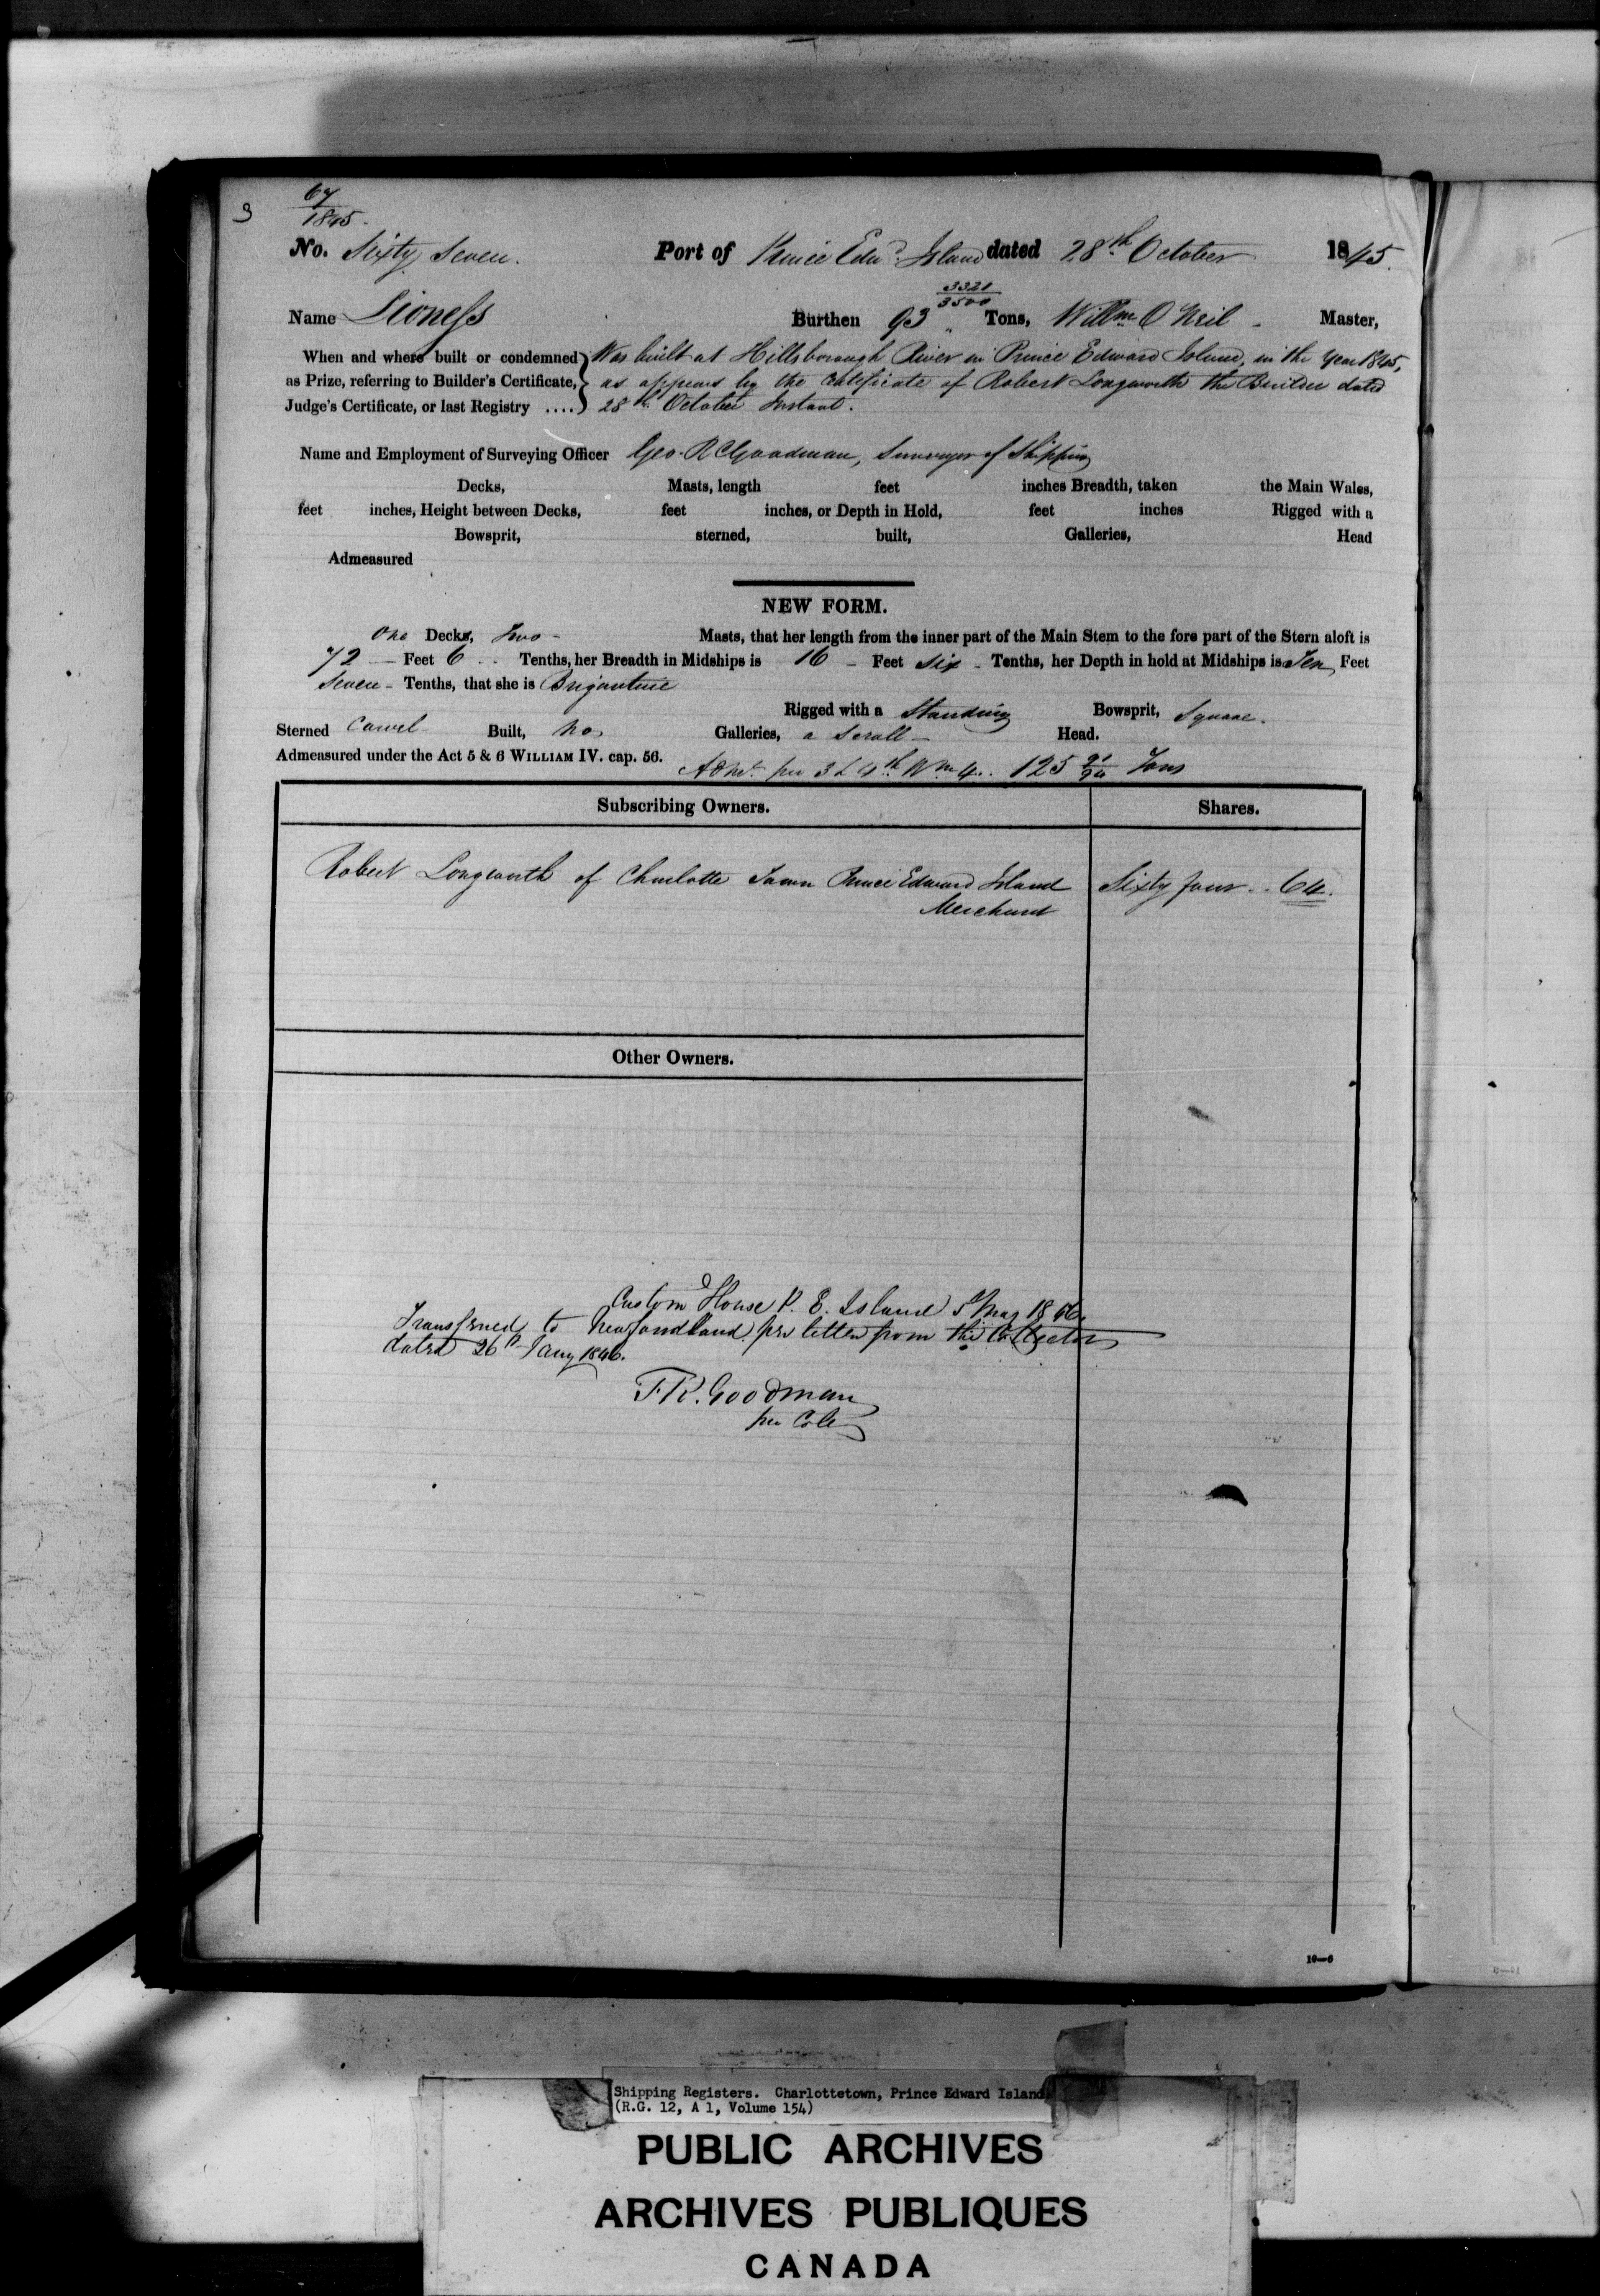 3
67
1845.
No. Sixty Seven. Port of Prince Edwd. Island dated 28th October 1845.
Name Lioness Burthen 93 3320/3500 Tons, Willm O'Neil - Master,
When and where built or condemned Was built at Hillsborough River in Prince Edward Island, in the Year 1845,
as Prize, referring to Builder's Certificate, as appears by the Certificate of Robert Longworth the Builder dated
Judge's Certificate, or last Registry .... 28th October Instant.
Name and Employment of Surveying Officer Geo. R Goodman, Surveyor of Shipping
Decks, Masts, length feet inches Breadth, taken the Main Wales,
feet inches, Height between Decks, feet inches, or Depth in Hold, feet inches Rigged with a
Bowsprit, sterned, built, Galleries, Head
Admeasured
NEW FORM.
One Decks, Two - Masts, that her length from the inner part of the Main Stem to the fore part of the Stern aloft is
72 - Feet 6 .. Tenths, her Breadth in Midships is 16 - Feet Six - Tenths, her Depth in hold at Midships is Ten Feet
Seven - Tenths, that she is Brigantine
Rigged with a Standing Bowsprit, Square.
Sterned Carvel Built, No Galleries, a Scroll - Head.
Admeasured under the Act 5 & 6 WILLIAM IV. cap. 56.
Admt. per 3 & 4th Wm 4.. 125 91/94 Tons
Subscribing Owners. Shares.
Robert Longworth of Charlotte Town Prince Edward Island Sixty four .. 64.
Merchant
Other Owners.
Custom House P. E. Island 5 May 1846.
Transferred to Newfoundland per letter from the Collector
dated 26th Jany 1846.
T R. Goodman
per Colr
10—6
Shipping Registers. Charlottetown, Prince Edward Island
(R.G. 12, A 1, Volume 154)
PUBLIC ARCHIVES
ARCHIVES PUBLIQUES
CANADA